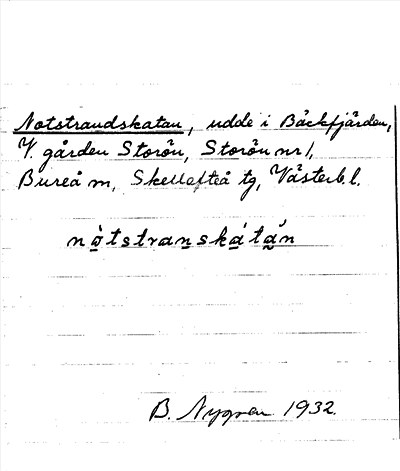 Notstrandskatan, udde i Bäckfjärden,
V. gården Storön, Storön nr 1,
Bureå m, Skellefteå tg, Västerb. l.
nò̠tstran̠ská̠ta̰̋n
B. Nygren 1932.